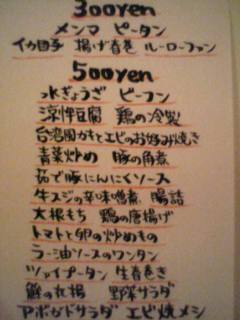 300yen
メンマ ピータン
イカ団子 揚げ春巻 ルーローファン
500yen
水ぎょうざ ビーフン
涼拌豆腐 鶏の冷製
台湾風カキとエビのお好み焼き
青菜炒め 豚の角煮
茹で豚にんにくソース
牛スジの辛味噌煮 腸詰
大根もち 鶏の唐揚げ
トマトと卵の炒めもの
ラー油ソースのワンタン
ツァイプータン 生春巻き
の丸揚 野菜サラダ
アボガドサラダ エビ焼メシ